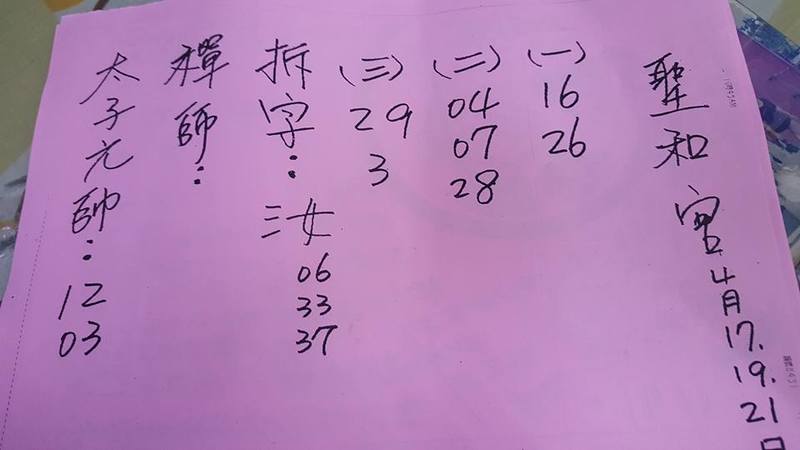 聖和宮4月17.19.21日
(一)1626
(二)040728
(三)293
拆字：汝063337
禪師：
太子元帥：1203